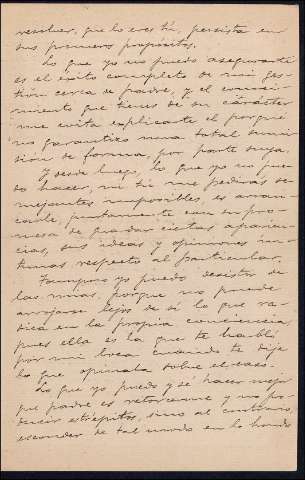 resolver, que lo eres tú, persista en
sus primeros propósitos.
Lo que yo no puedo asegurarte
es el éxito completo de mi ges-
tión cerca de padre, y el conoci-
miento que tienes de su carácter
me evita explicarte el porqué
no garantizo una total sumi-
sión de forma, por parte suya.
Y desde luego, lo que yo no pue-
do hacer, ni tú me pedirás se-
mejantes imposibles, es arran-
carle, juntamente con su pro-
mesa de guardar ciertas aparien-
cias, sus ideas y opiniones ín-
timas respecto al particular.
Tampoco yo puedo desistir de
las mías, porque no puede
arrojarse lejos de sí lo que ra-
dica en la propia conciencia,
pues ella es la que te habló
por mi boca cuando te dije
lo que opinaba sobre el caso.
Lo que yo puedo y sé hacer mejor
que padre es retorcerme y no pro-
ducir estrépitos, sino al contrario,
esconder de tal modo en lo hondo